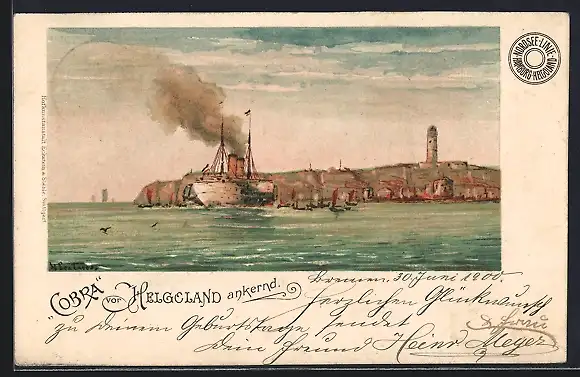 NORDSEE-LINIE
HAMBURG-HELGOLAND
"COBRA" vor HELGOLAND ankernd.
Bremen. 30 Juni 1900.
Herzlichen Glückwunsch
zu Deinem Geburtstage sendet
& Frau
Dein Freund Heinr Meyer